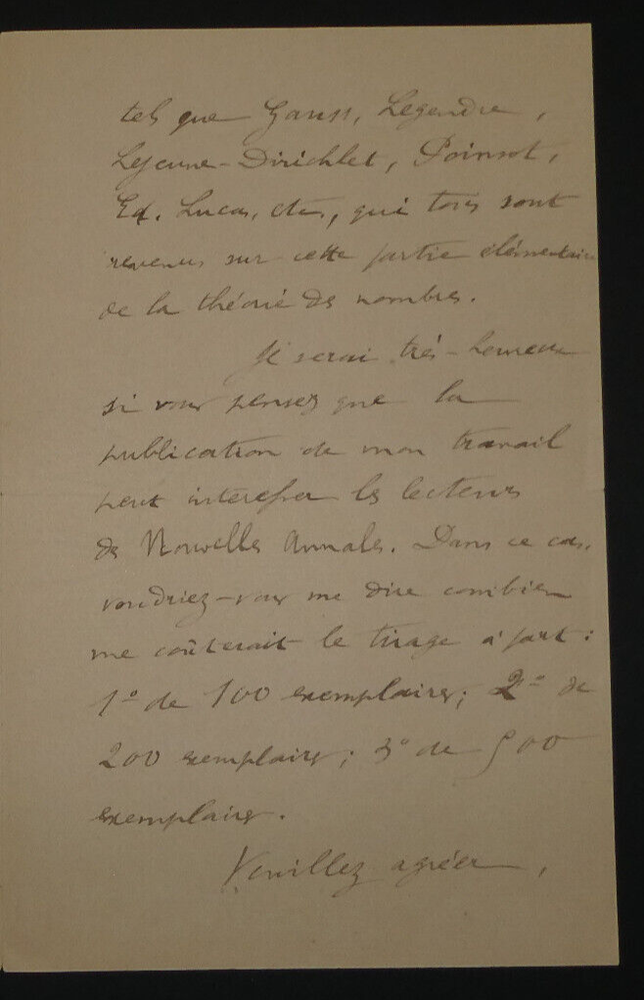 tels que Gauss, Legendre,
Lejeune-Dirichlet, Poinsot,
Ed. Lucas, etc, qui tous sont
revenus sur cette partie élémentaire
de la théorie des nombres.
Je serai très-heureux
si vous pensez que la
publication de mon travail
peut intéresser les lecteurs
des Nouvelles Annales. Dans ce cas,
voudriez-vous me dire combien
me coûterait le tirage à part :
1° de 100 exemplaires; 2° de
200 exemplaires; 3° de 500
exemplaires.
Veuillez agréer,